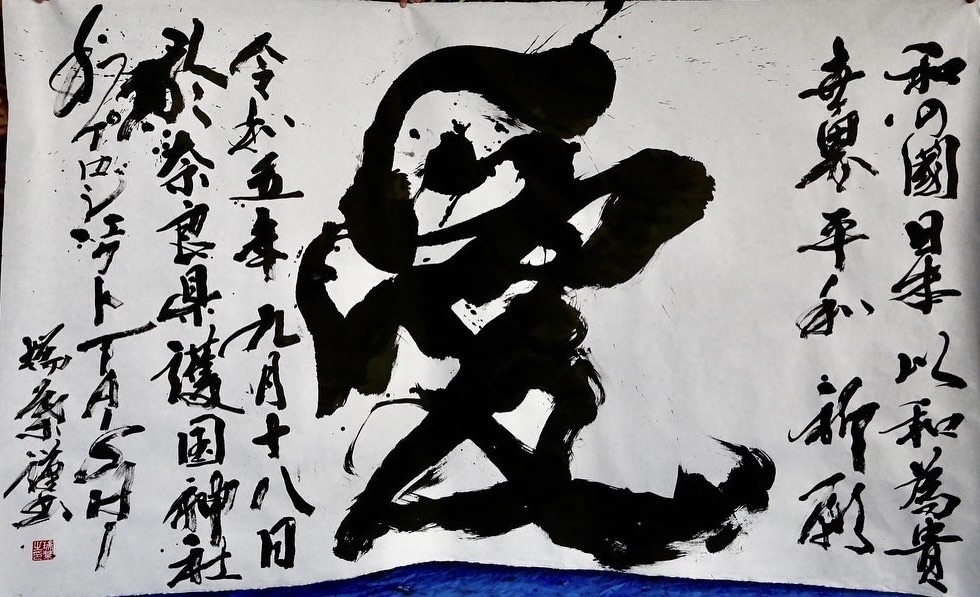 和の國日本 以和為貴
世界平和 祈願
愛
令和五年九月十八日
於奈良県護国神社
和プロジェクトTAISHI
謹書